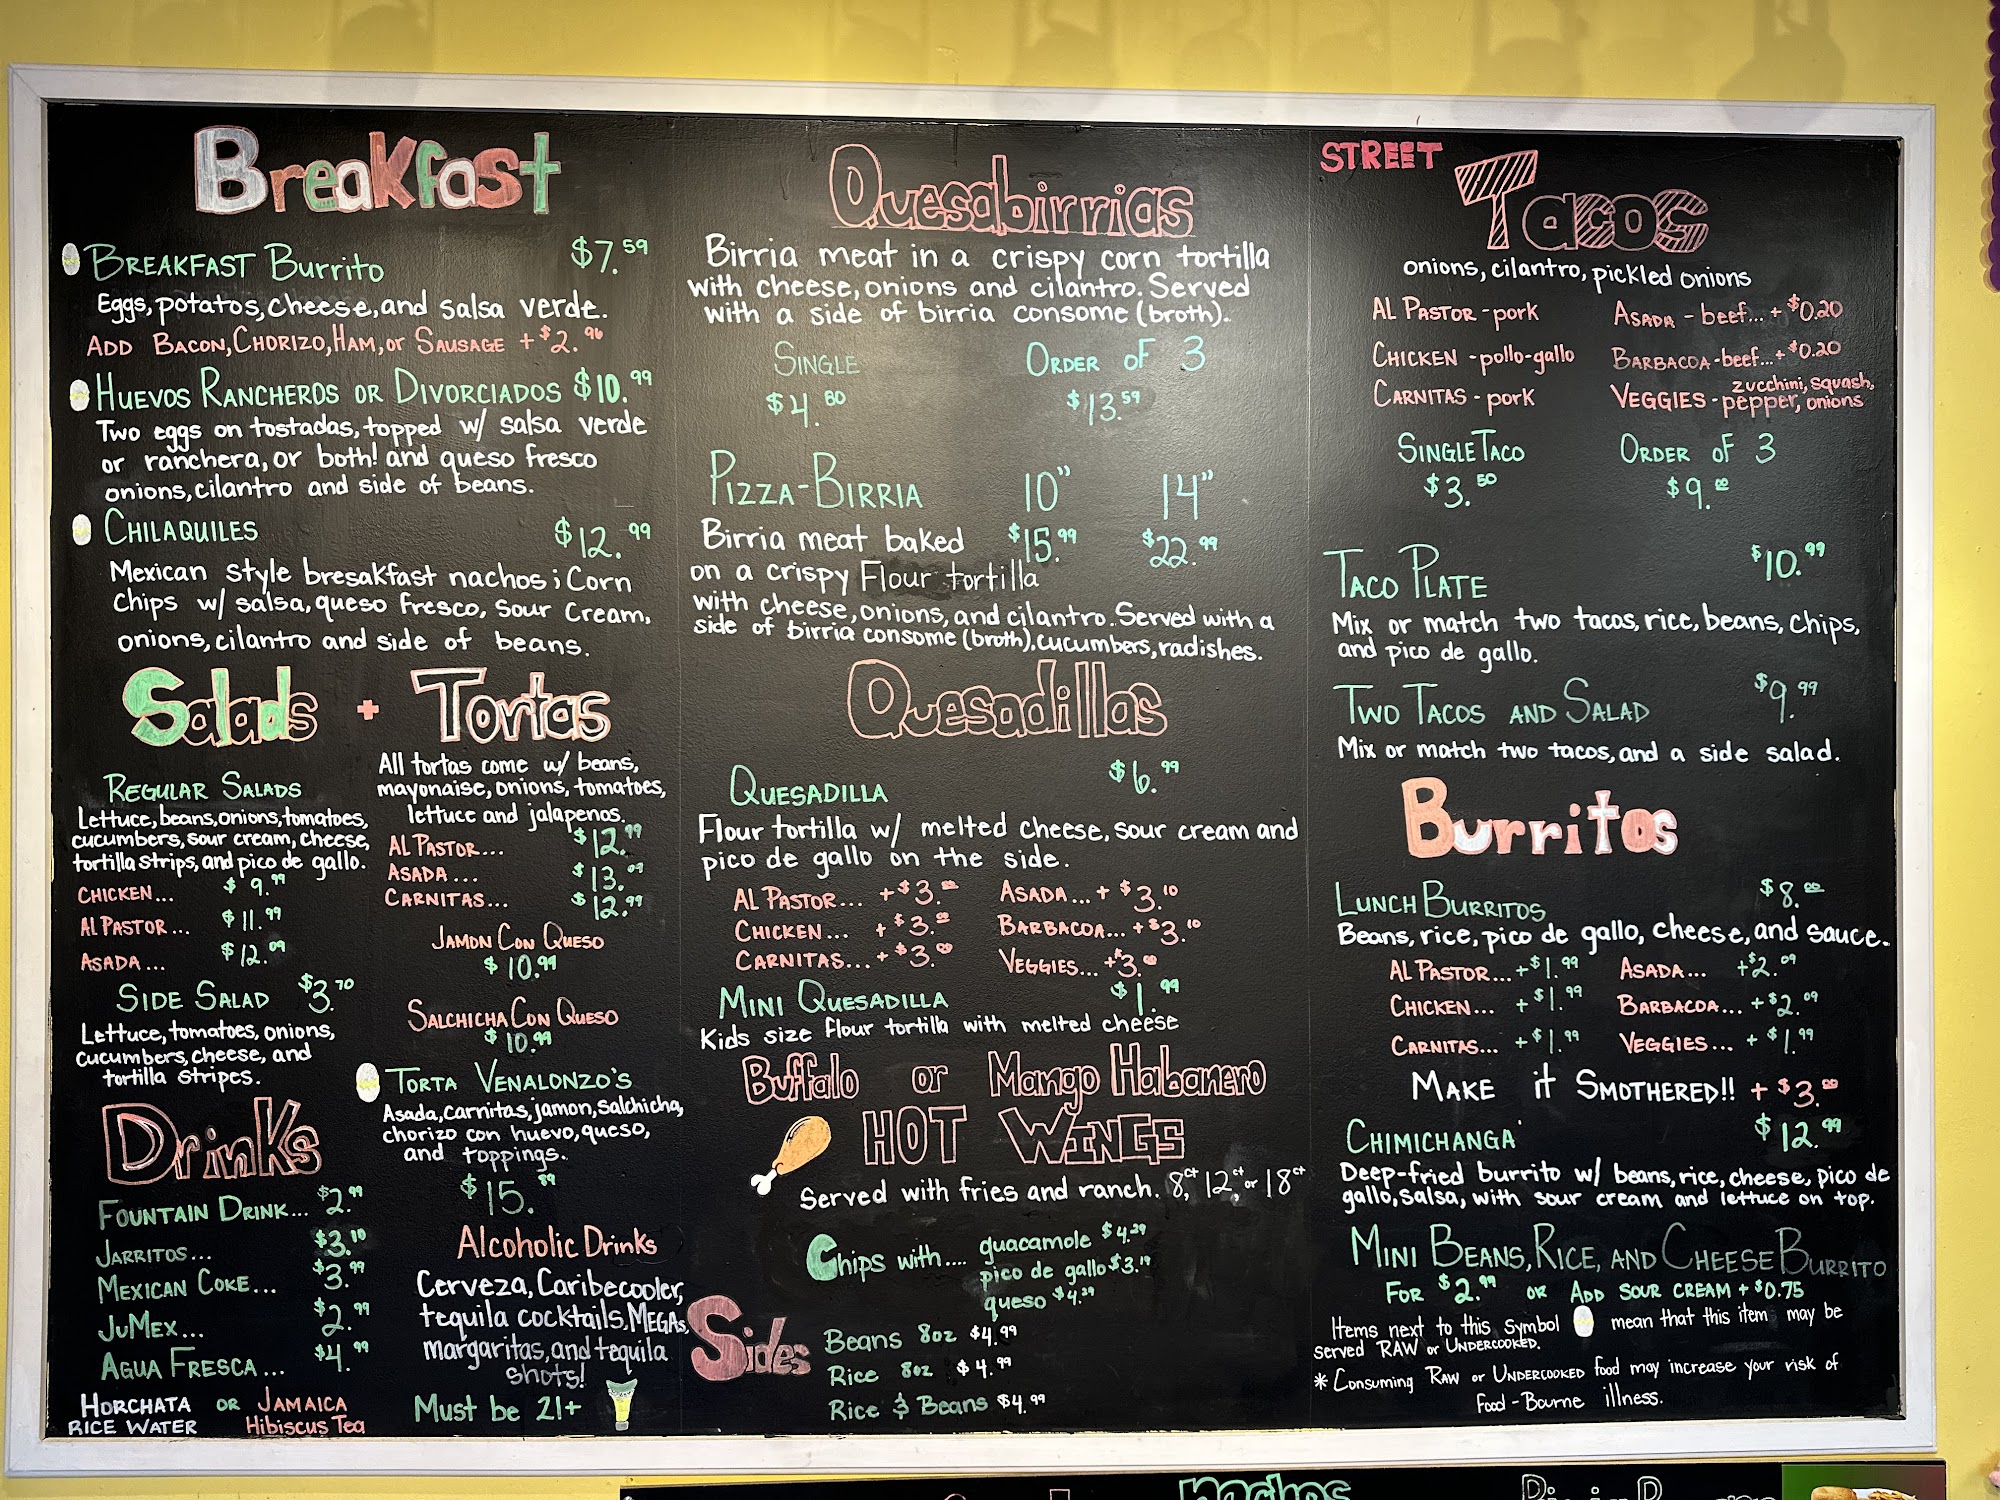 Breakfast
BREAKFAST Burrito $7.59
Eggs, potatos, cheese, and salsa verde.
ADD BACON, CHORIZO, HAM, or SAUSAGE + $2.96
HUEVOS RANCHEROS OR DIVORCIADOS $10.99
Two eggs on tostadas, topped w/ salsa verde
or ranchera, or both! and queso fresco
onions, cilantro and side of beans.
CHILAQUILES $12.99
Mexican style bresakfast nachos; Corn
Chips w/ salsa, queso fresco, sour cream,
onions, cilantro and side of beans.
Salads + Tortas
REGULAR SALADS
Lettuce, beans, onions, tomatoes,
cucumbers, sour cream, cheese,
tortilla strips, and pico de gallo.
CHICKEN... $9.99
AL PASTOR... $11.99
ASADA... $12.09
SIDE SALAD $3.70
Lettuce, tomatoes, onions,
cucumbers, cheese, and
tortilla stripes.
All tortas come w/ beans,
mayonaise, onions, tomatoes,
lettuce and jalapenos.
AL PASTOR... $12.99
ASADA... $13.09
CARNITAS... $12.99
JAMON CON QUESO
$10.99
SALCHICHA CON QUESO
$10.99
TORTA VENALONZO'S
Asada, carnitas, jamon, salchicha,
chorizo con huevo, queso,
and toppings.
$15.89
Drinks
FOUNTAIN DRINK... $2.99
JARRITOS... $3.10
MEXICAN COKE... $3.99
JuMEX... $2.99
AGUA FRESCA... $4.99
HORCHATA OR JAMAICA
RICE WATER Hibiscus Tea
Alcoholic Drinks
Cerveza, Caribecooler,
tequila cocktails, MEGAs,
margaritas, and tequila
shots!
Must be 21+
Quesabirrias
Birria meat in a crispy corn tortilla
with cheese, onions and cilantro. Served
with a side of birria consome (broth).
SINGLE ORDER OF 3
$4.80 $13.59
PIZZA-BIRRIA 10" 14"
Birria meat baked $15.99 $22.99
on a crispy Flour tortilla
with cheese, onions, and cilantro. Served with a
side of birria consome (broth), cucumbers, radishes.
Quesadillas
QUESADILLA $6.99
Flour tortilla w/ melted cheese, sour cream and
pico de gallo on the side.
AL PASTOR... +$3.00 ASADA... + $3.10
CHICKEN... +$3.00 BARBACOA... +$3.10
CARNITAS... +$3.00 VEGGIES... +$3.00
MINI QUESADILLA $1.99
Kids size flour tortilla with melted cheese
Buffalo or Mango Habanero
HOT WINGS
Served with fries and ranch. 8ct, 12ct, or 18ct
Chips with.... guacamole $4.29
pico de gallo $3.19
queso $4.29
Sides
Beans 8oz $4.99
Rice 8oz $4.99
Rice & Beans $4.99
STREET Tacos
onions, cilantro, pickled onions
AL PASTOR - pork ASADA - beef... + $0.20
CHICKEN - pollo-gallo BARBACOA - beef... + $0.20
CARNITAS - pork VEGGIES - zucchini, squash,
pepper, onions
SINGLE TACO ORDER OF 3
$3.50 $9.00
TACO PLATE $10.99
Mix or match two tacos, rice, beans, chips,
and pico de gallo.
TWO TACOS AND SALAD $9.99
Mix or match two tacos, and a side salad.
Burritos
LUNCH BURRITOS $8.00
Beans, rice, pico de gallo, cheese, and sauce.
AL PASTOR... +$1.99 ASADA... +$2.09
CHICKEN... +$1.99 BARBACOA... +$2.09
CARNITAS... +$1.99 VEGGIES... +$1.99
MAKE it SMOTHERED!! + $3.00
CHIMICHANGA' $12.99
Deep-fried burrito w/ beans, rice, cheese, pico de
gallo, salsa, with sour cream and lettuce on top.
MINI BEANS, RICE, AND CHEESE BURRITO
FOR $2.99 OR ADD SOUR CREAM + $0.75
Items next to this symbol mean that this item may be
served RAW or UNDERCOOKED.
* Consuming RAW or UNDERCOOKED food may increase your risk of
Food-Bourne illness.
nachos